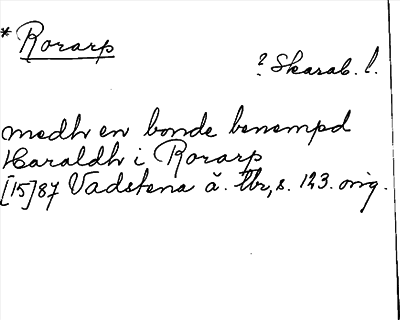 * Rorarp
? Skarab. l.
medh en bonde benempd
Haraldh i Rorarp
[15]87 Vadstena ä. tbr, s. 123. orig.